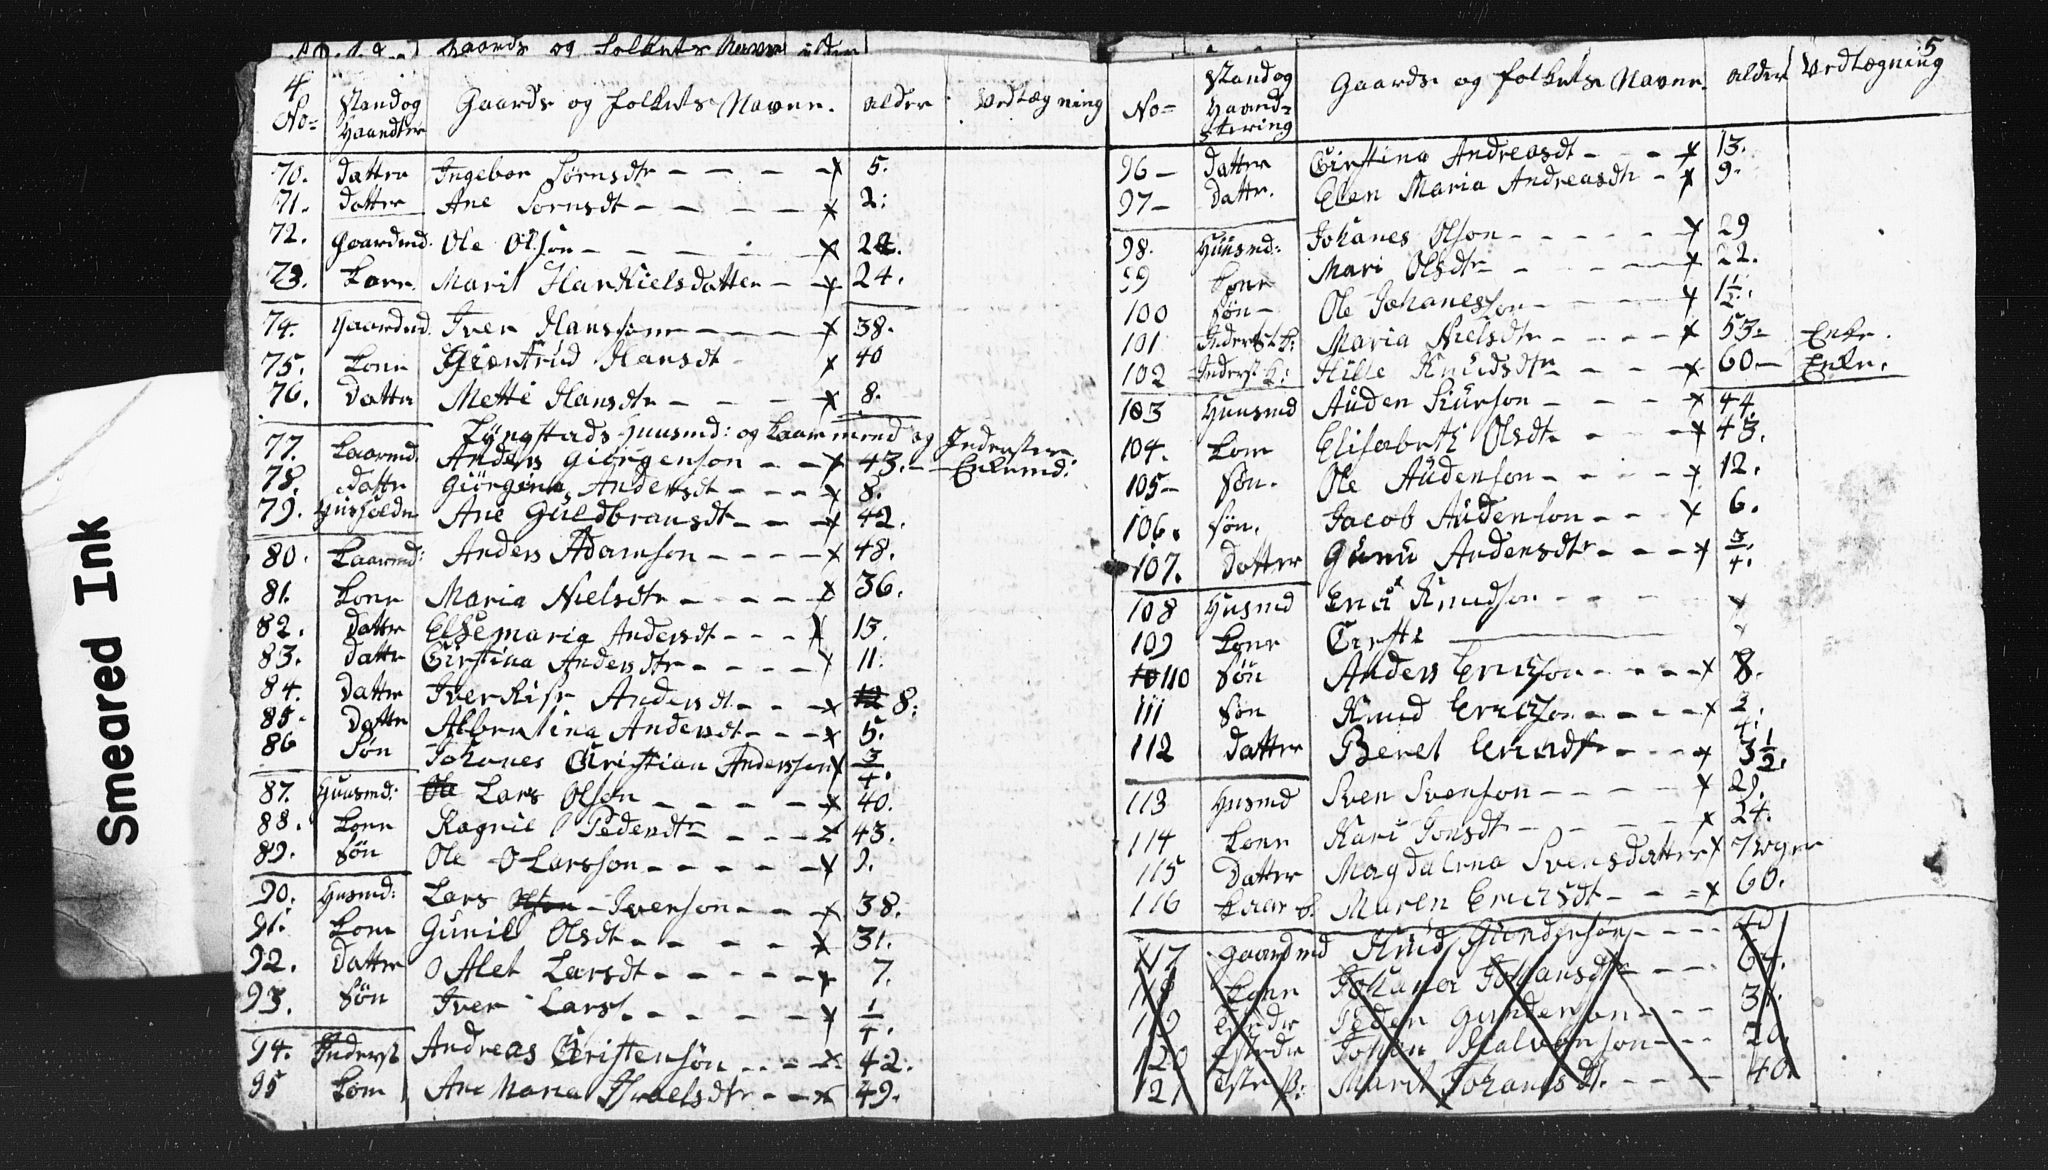 Smeared Ink
Gaards og folkets Navne alder
4.
No= Stand og Haandter Gaards og folkets Navne. alder Vedtægning
70. Datter Ingebor Sørnsdtr x 5.
71. Datter Ane Sørnsdt x 2.
72. Gaardmd. Ole Olsøn x
73. Kone. Marit Harkielsdatter x 24.
74. Gaardmd. Iver Hanssøn x 38.
75. Kone Hansdt x 40
76. Datter Mette Hansdtr x 8.
Lÿngstads Huusmd: og Kaarmend og Inderster
77. Kaarmd. Anders Giørgenson x 43. Enkemd:
78. Dattr Giørgina Andersdt x 8.
79. Ane Guldbransdt x 42.
80. Kaarmd: Anders Adamson x 48.
81. Kone Maria Nielsdtr x 36.
82. Dattr Elsemaria Andersdt x 13.
83. Dattr Cirstina Andersdtr x 11.
84. Dattr Andersdt x 8.
85. Dattr Albertina Andersdt x 5.
86 Søn Johanes Christian Anderssøn x 3/4.
87. Huusmd: Lars Olson x 40.
88. Kone Ragnil Pedersdtr x 43.
89. Søn Ole Larsson x 9.
90. Husmd: Lars Iverson x 38.
91. Kone Gunil Olsdt x 31.
92. Dattr Alet Larsdt x 7.
93. Søn Iver Lars. x 1/4.
94. Inderst Andreas Christensøn x 42.
95 Kone Ane Maria Israelsdtr x 49.
5
No= Stand og Haand=tering Gaards og folkets Navne. alder Vedtægning
96 Datter Cirstina Andreasdt x 13.
97 Dattr. Elen Maria Andreasdtr x 9.
98. Huusmd: Johanes Olson x 29
99 Kone Mari Olsdtr x 22.
100 Søn Ole Johanesson x 1 1/2.
101 Maria Nielsdtr x 53 Enke.
102 Inderst K: Hille Knudsdtr x 60 Enke.
103 Huusmd Auden Siurson x 44.
104. Kone Elisabeth Olsdt x 43.
105 Søn. Ole Audenson x 12.
106. Søn. Jacob Audenson x 6.
107. Datter Guru Andersdtr x 3/4.
108 Husmd Erick Knudson x
109 Kone Cirsti x
110 Søn Anders Ericson x 8.
111 Søn Knud Ericson x 3/4.
112 Datter Beret Ericsdtr x 3 1/2.
113 Husmd Sven Svenson x 29.
114 Kone Kari Jonsdt x 24.
115 Datter Magdalena Svensdatter x 7 Uger
116 Kaar K. Maren Ericsdt x 60.
117 Gaardmd Knud Gundersøn 40
118 Kone Johana Johansdtr
119 Peder Gunderson
120 Johan Halvorson 20.
121 Marit Johansdt. 40.